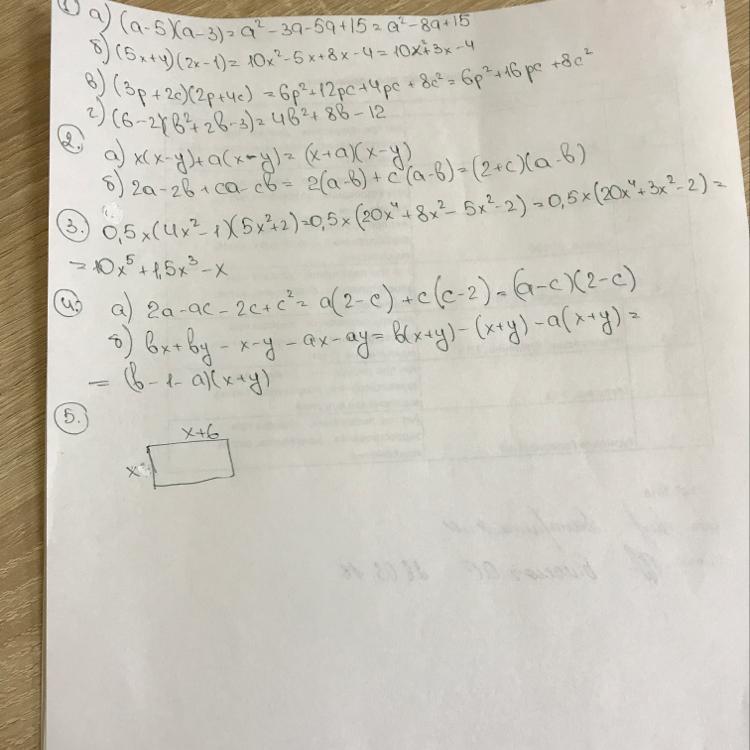 1) а) (a-5)(a-3) = a² - 3a - 5a + 15 = a² - 8a + 15
б) (5x+4)(2x-1) = 10x² - 5x + 8x - 4 = 10x² + 3x - 4
в) (3p+2c)(2p+4c) = 6p² + 12pc + 4pc + 8c² = 6p² + 16pc + 8c²
г) (6-2)(b²+2b-3) = 4b² + 8b - 12
2. а) x(x-y) + a(x-y) = (x+a)(x-y)
б) 2a - 2b + ca - cb = 2(a-b) + c(a-b) = (2+c)(a-b)
3. 0,5x(4x²-1)(5x²+2) = 0,5x(20x⁴ + 8x² - 5x² - 2) = 0,5x(20x⁴ + 3x² - 2) =
= 10x⁵ + 1,5x³ - x
4. а) 2a - ac - 2c + c² = a(2-c) + c(c-2) = (a-c)(2-c)
б) bx + by - x - y - ax - ay = b(x+y) - (x+y) - a(x+y) =
= (b-1-a)(x+y)
5.
x+6
x